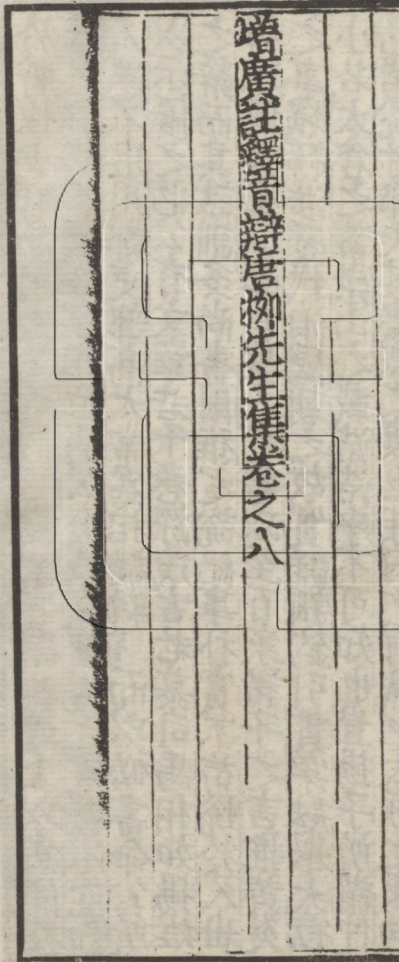 增廣註釋音辯唐柳先生集卷之八